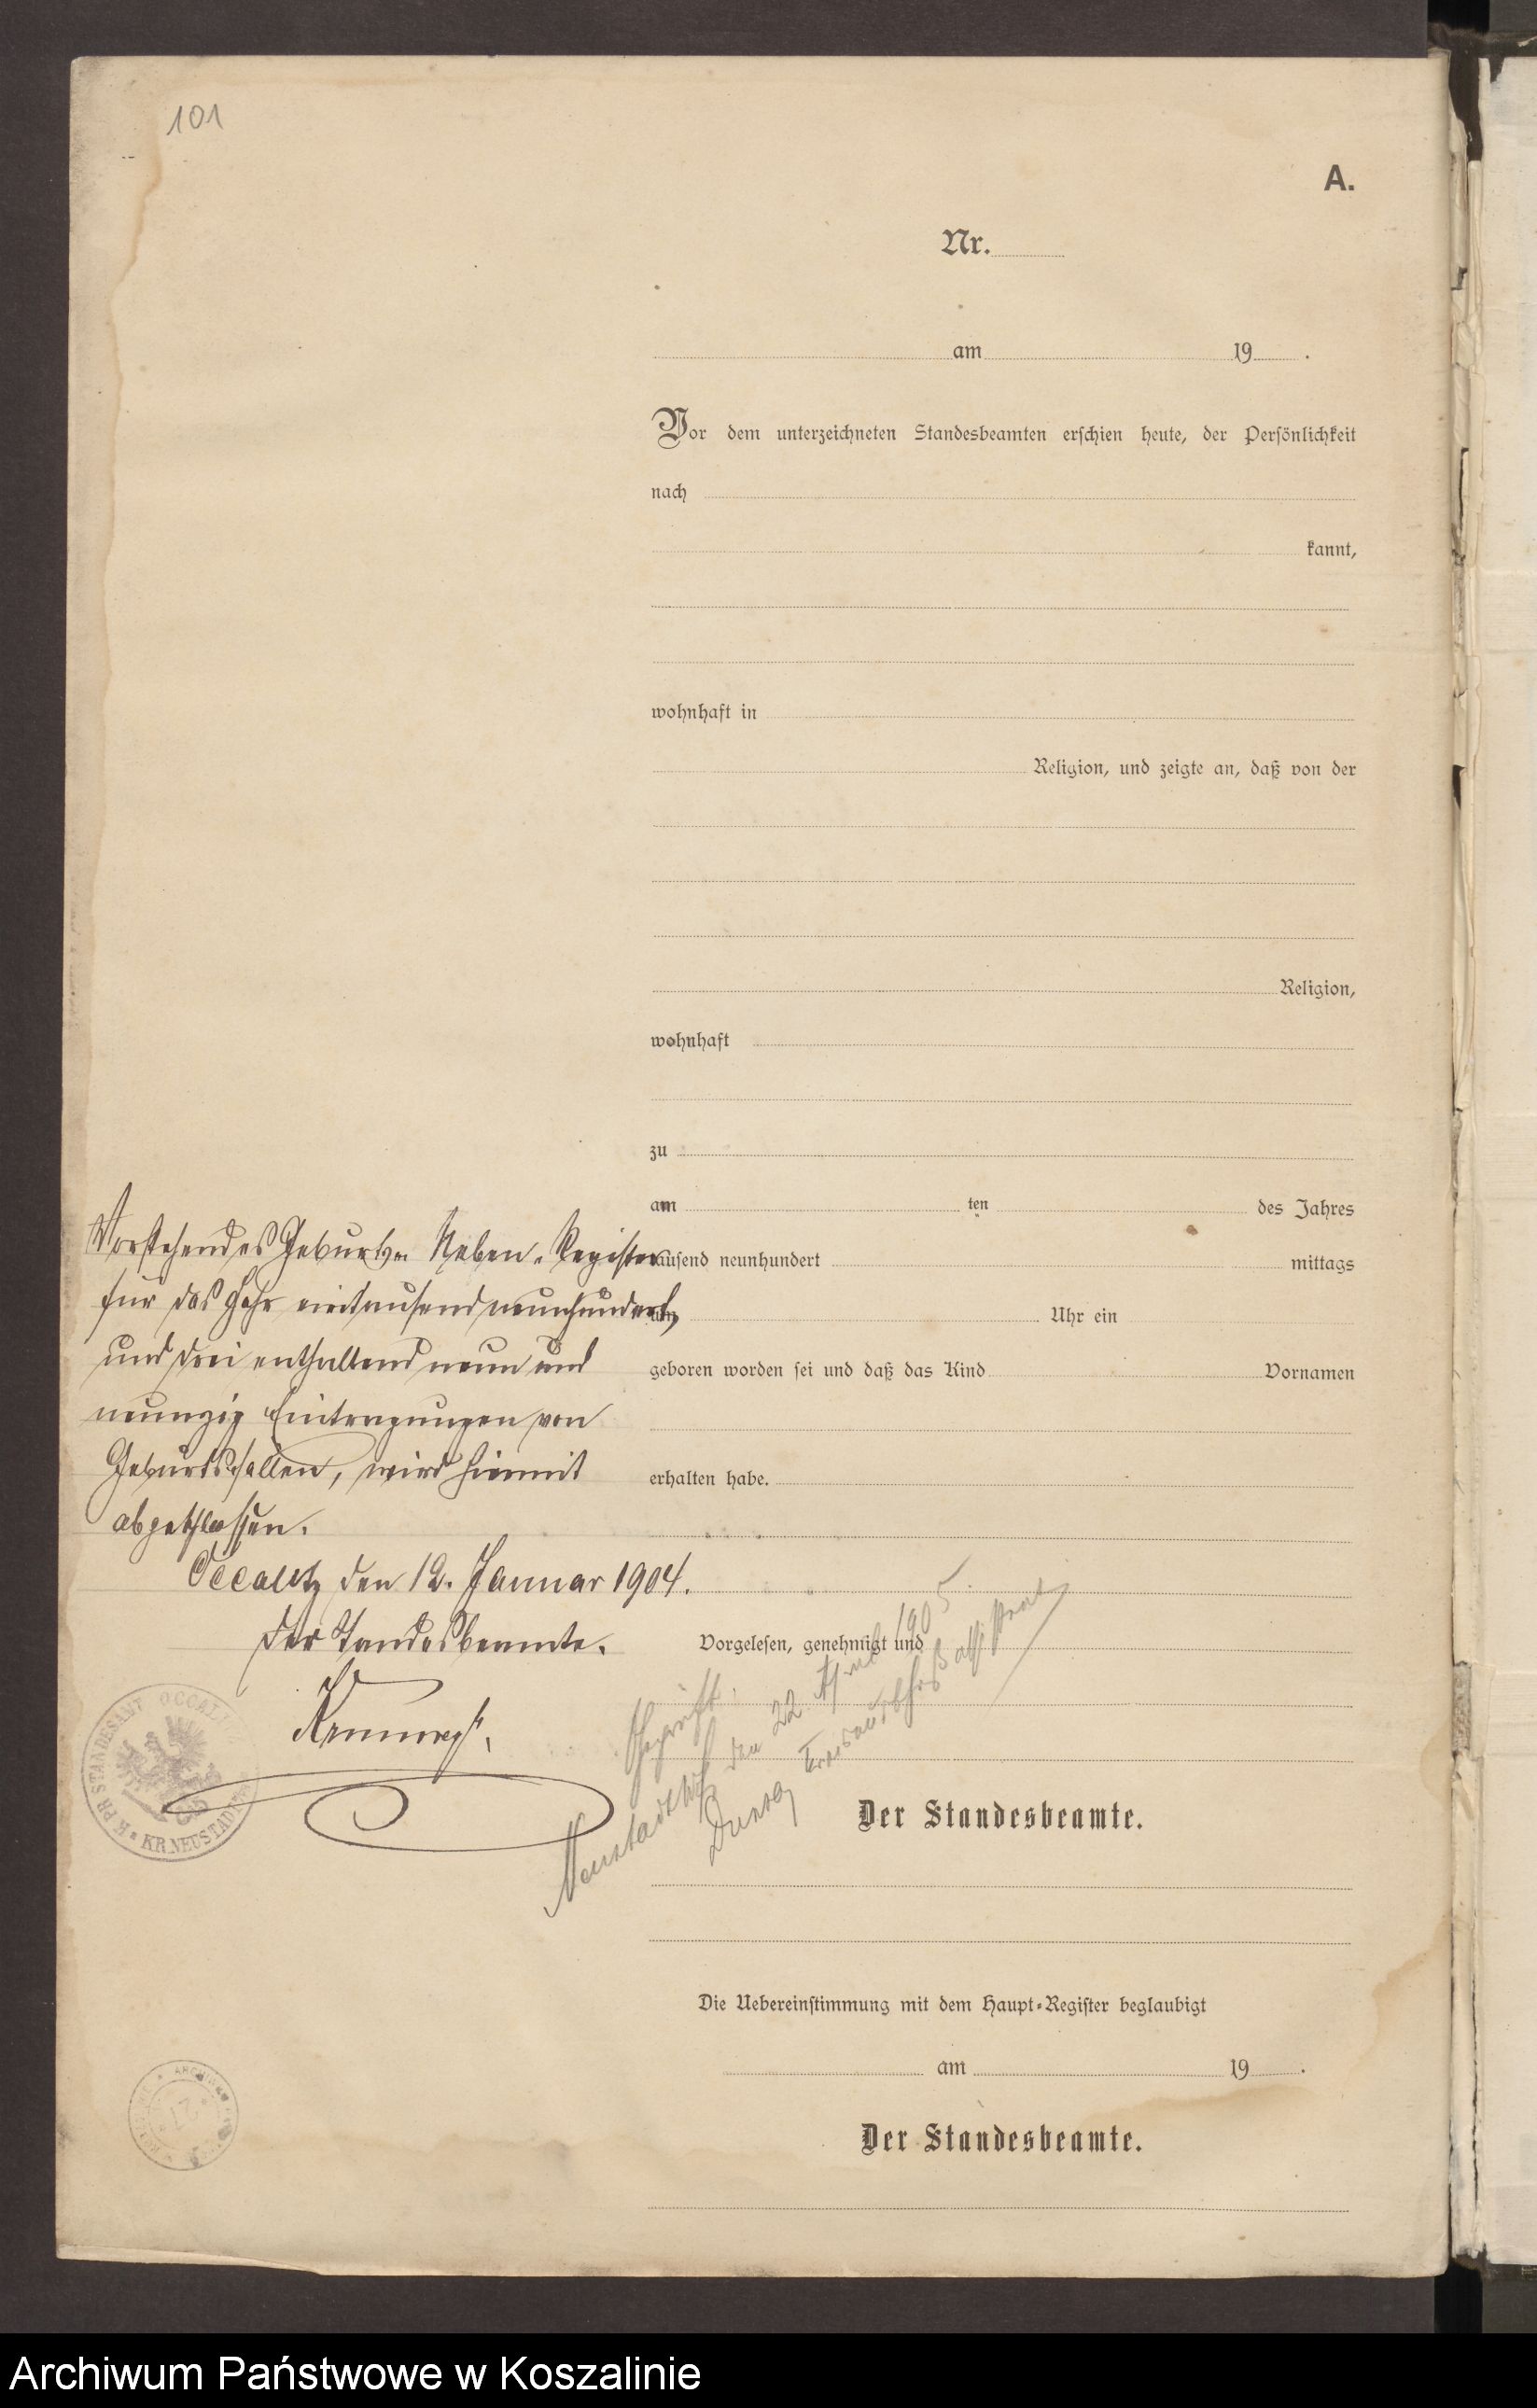 101
A.
Nr.
am 19 .
Vor dem unterzeichneten Standesbeamten erschien heute, der Persönlichkeit
nach
kannt,
wohnhaft in
Religion, und zeigte an, daß von der
Religion,
wohnhaft
zu
am ten des Jahres
tausend neunhundert mittags
um Uhr ein
geboren worden sei und daß das Kind Vornamen
erhalten habe.
Vorstehendes Geburts- Neben-Register
für das Jahr eintausendneunhundert
und drei enthaltend neun und
neunzig Eintragungen von
Geburtsfällen, wird hiermit
abgeschlossen.
Occalitz den 12. Januar 1904.
Der Standesbeamte.
Vorgelesen, genehmigt und
Geprüft.
Neustadt den 22. April 1905.
Kreisausschuß
K. PR. STANDESAMT OCCALITZ
KR. NEUSTADT
Der Standesbeamte.
Die Uebereinstimmung mit dem Haupt-Register beglaubigt
am 19 .
Der Standesbeamte.
Archiwum Państwowe w Koszalinie